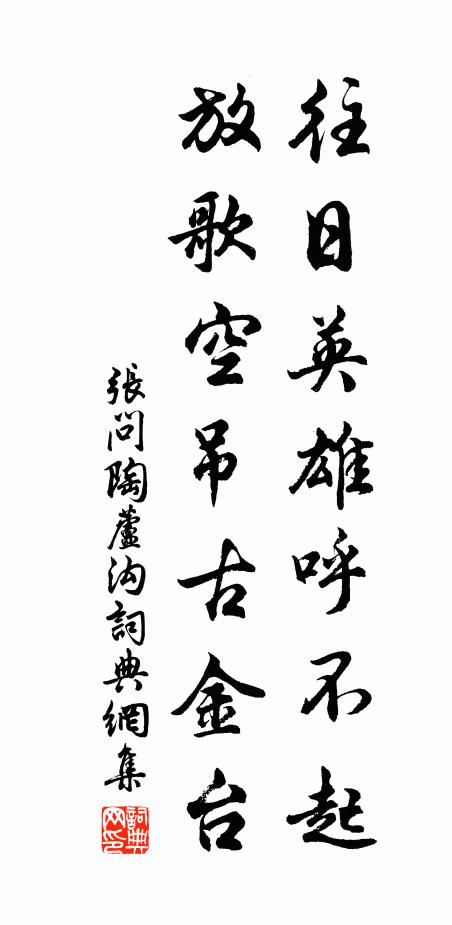 往日英雄呼不起
放歌空吊古金台
張問陶蘆沟詞典網集
詞典网印